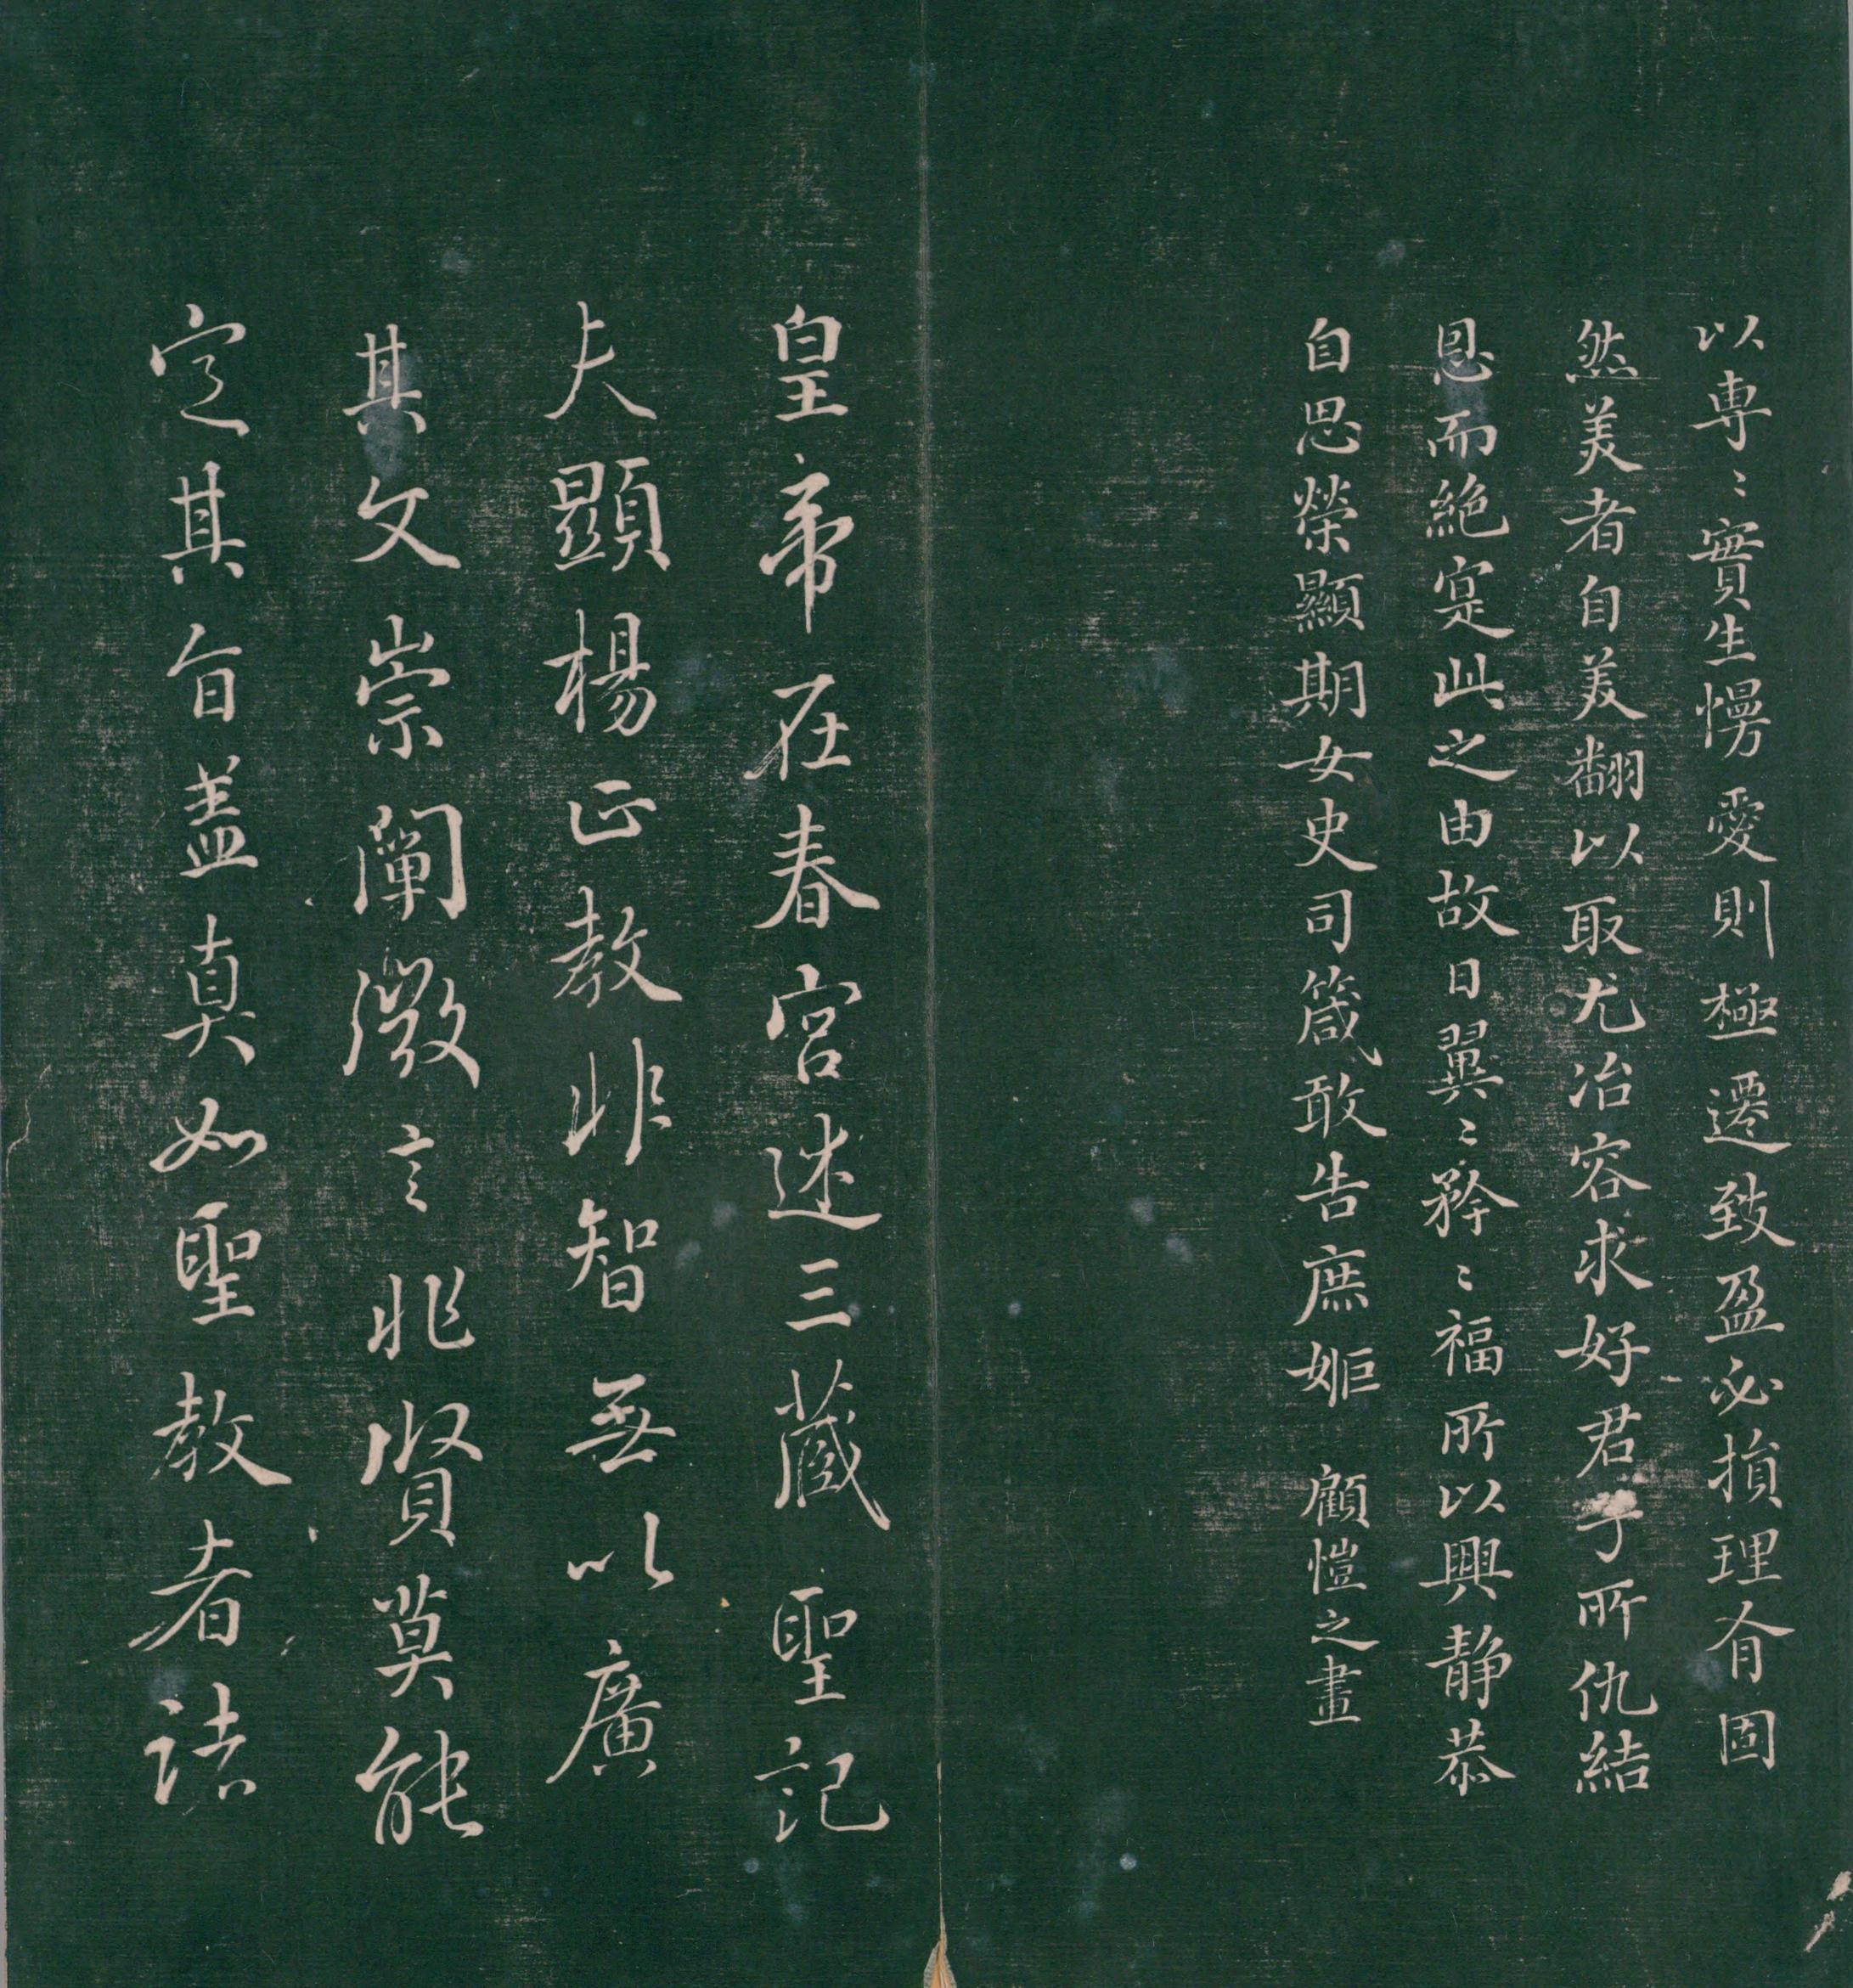 以専〻實生慢愛則極遷致盈必損理有固
然美者自美翻以取尤冶容求好君子所仇結
恩而絕寔此之由故曰翼〻矜〻福所以興静恭
自思榮顯期女史司箴敢告庶姬 顧愷之畫
皇帝在春宮述三藏 聖記
夫顯楊正教非智無以廣
其文崇闡微言非賢莫能
定其旨盖真如聖教者諸